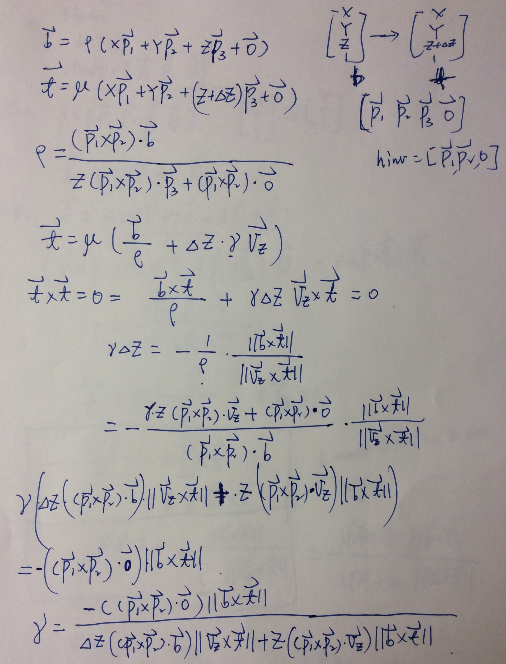 b⃗ = ρ(Xp⃗₁+Yp⃗₂+Zp⃗₃+o⃗)
t⃗ = μ(Xp⃗₁+Yp⃗₂+(Z+ΔZ)p⃗₃+o⃗)
[X Y Z 1] → [X Y Z+ΔZ 1]
b t
[p⃗₁ p⃗₂ p⃗₃ o⃗]
hinv = [p⃗₁, p⃗₂, o]
ρ = (p⃗₁×p⃗₂)·b⃗ / Z(p⃗₁×p⃗₂)·p⃗₃+(p⃗₁×p⃗₂)·o⃗
t⃗ = μ(b⃗/ρ + ΔZ·γV⃗z)
t⃗×t⃗ = 0 = b⃗×t⃗/ρ + γΔZ V⃗z×t⃗ = 0
γΔZ = -1/ρ · ||b⃗×t⃗||/||V⃗z×t⃗||
= -γZ(p⃗₁×p⃗₂)·V⃗z+(p⃗₁×p⃗₂)·o⃗ / (p⃗₁×p⃗₂)·b⃗ · ||b⃗×t⃗||/||V⃗z×t⃗||
γ(ΔZ((p⃗₁×p⃗₂)·b⃗)||V⃗z×t⃗||+Z((p⃗₁×p⃗₂)·V⃗z)||b⃗×t⃗||)
= -((p⃗₁×p⃗₂)·o⃗)||b⃗×t⃗||
γ = -((p⃗₁×p⃗₂)·o⃗)||b⃗×t⃗|| / ΔZ((p⃗₁×p⃗₂)·b⃗)||V⃗z×t⃗||+Z((p⃗₁×p⃗₂)·V⃗z)||b⃗×t⃗||